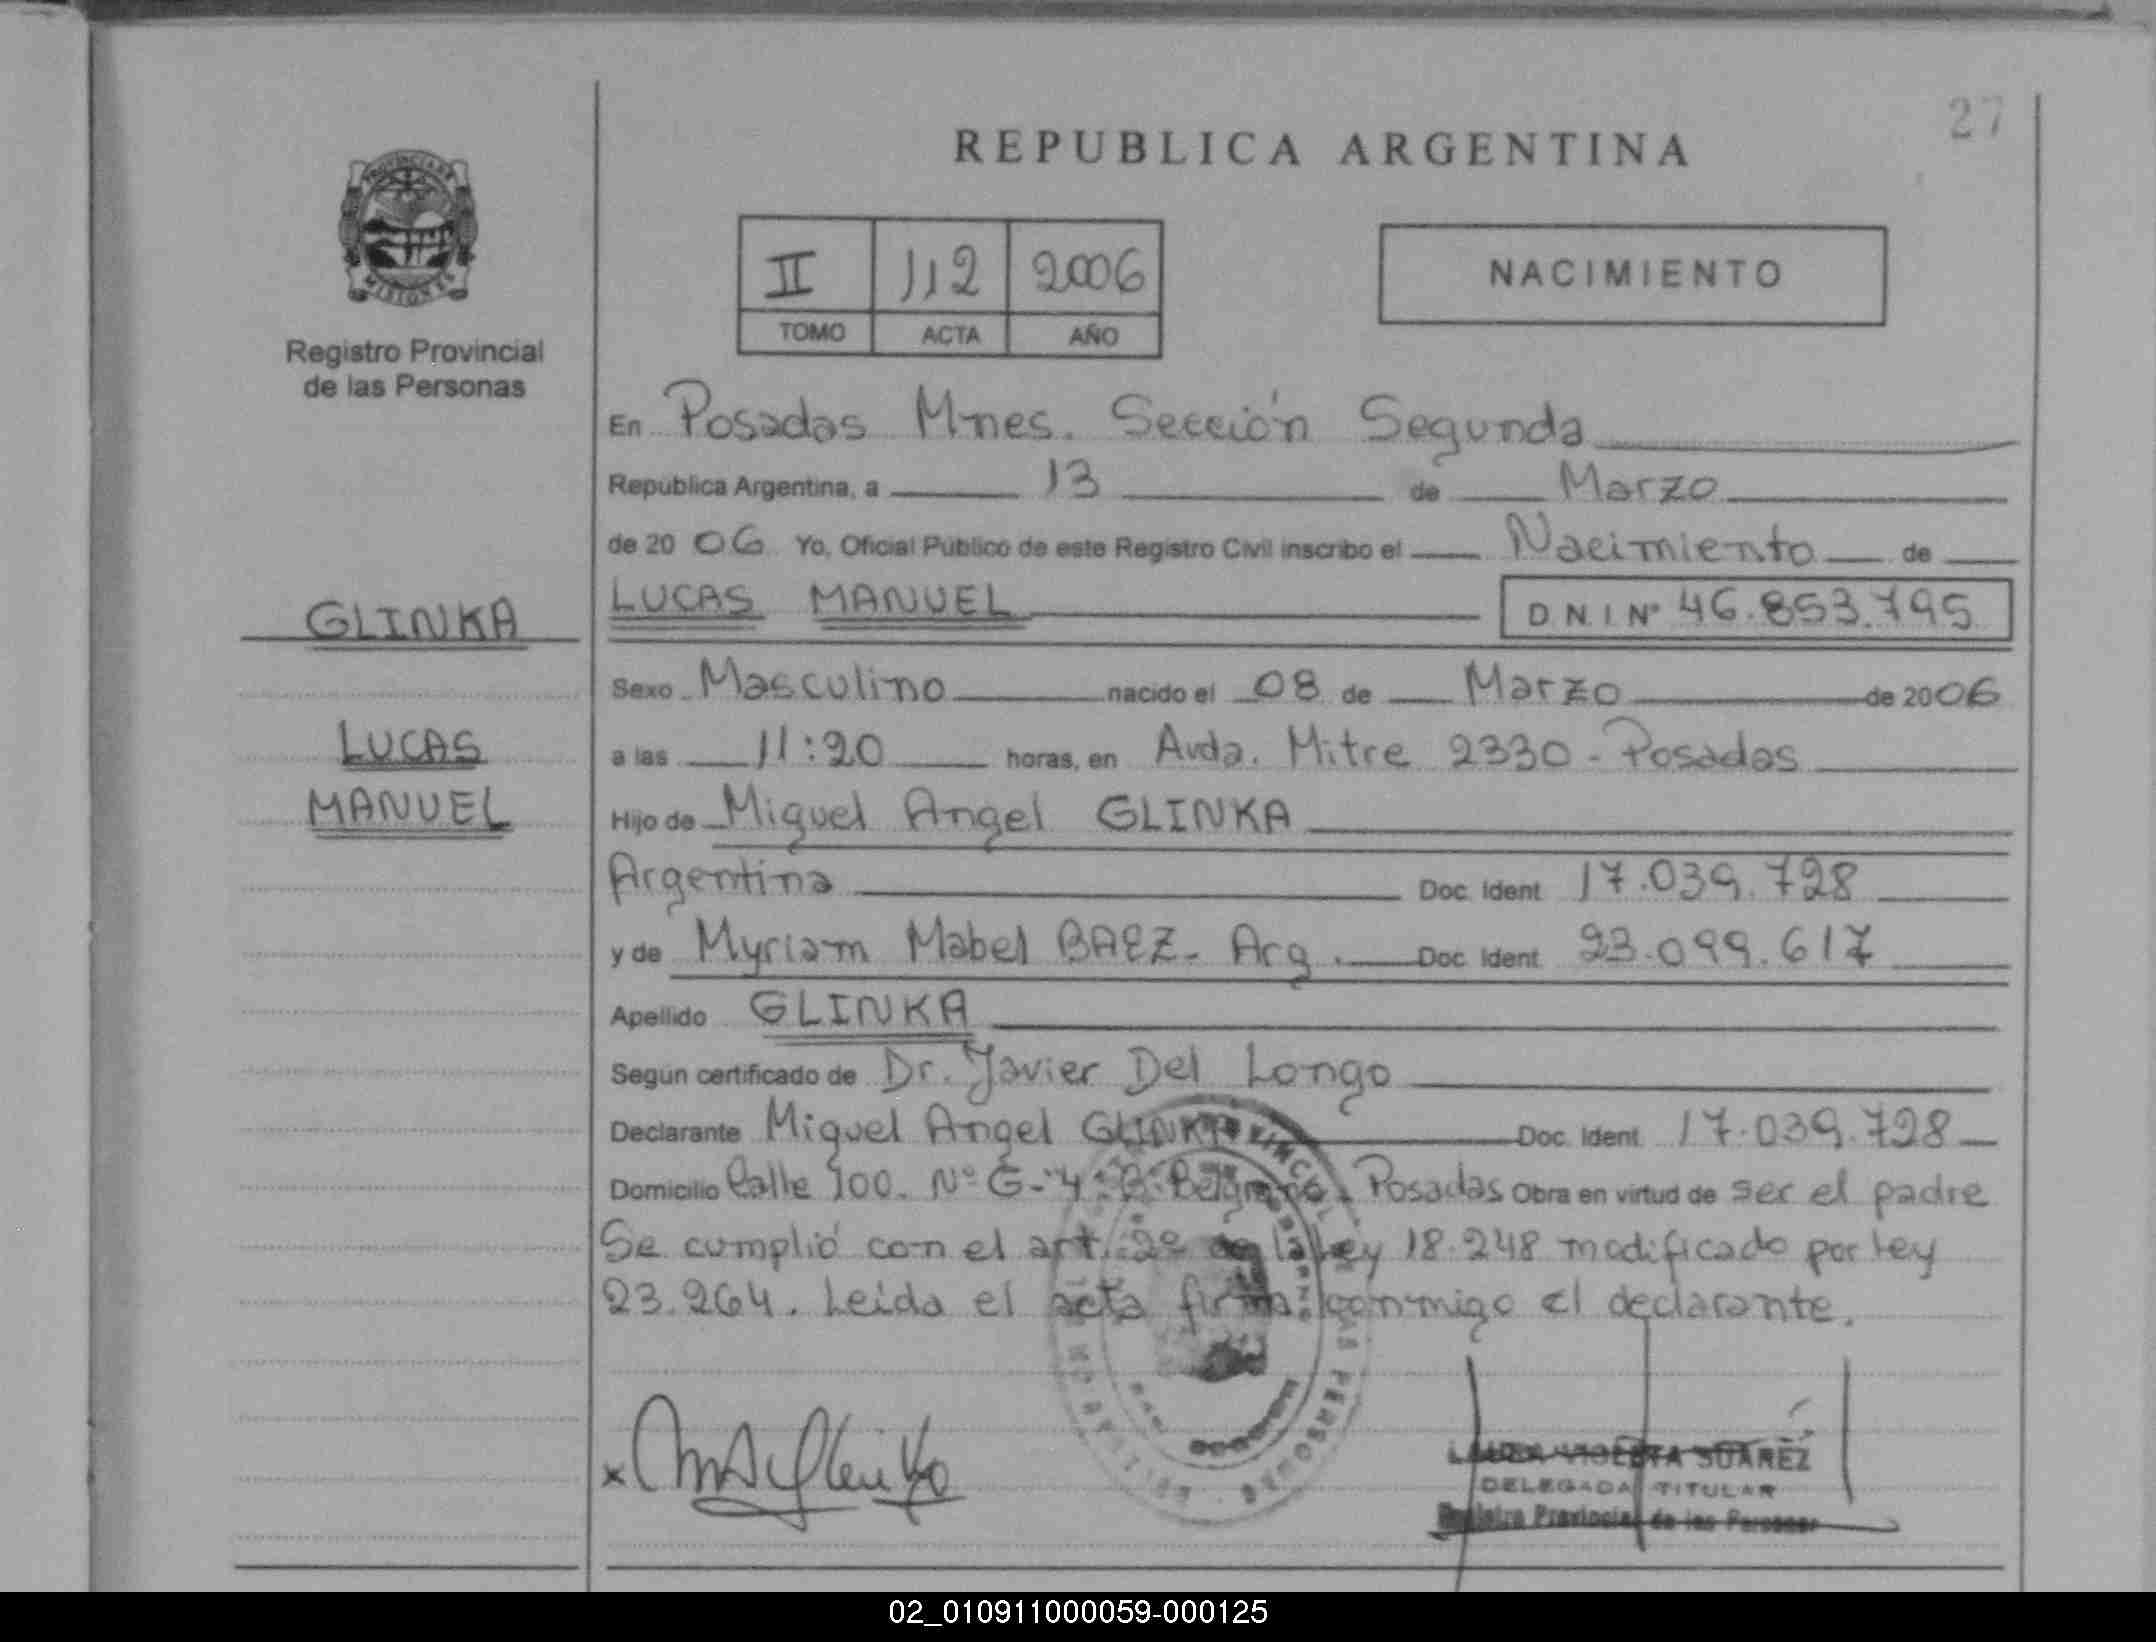 27
REPUBLICA ARGENTINA
PROVINCIA DE
MISIONES
Registro Provincial
de las Personas
II 112 2006
TOMO ACTA AÑO
NACIMIENTO
En Posadas Mnes. Sección Segunda
Republica Argentina, a 13 de Marzo
de 20 06 Yo, Oficial Público de este Registro Civil inscribo el Nacimiento de
GLINKA
LUCAS MANUEL D.N.I Nº 46.853.795
Sexo Masculino nacido el 08 de Marzo de 2006
LUCAS
a las 11:20 horas, en Avda. Mitre 2330 - Posadas
MANUEL
Hijo de Miguel Angel GLINKA
Argentina Doc. Ident. 17.039.728
y de Myriam Mabel BAEZ - Arg. Doc. Ident. 23.099.617
Apellido GLINKA
Segun certificado de Dr. Javier Del Longo
Declarante Miguel Angel GLINKA Doc. Ident. 17.039.728
Domicilio Calle 100. Nº G-4 Belgrano. Posadas Obra en virtud de ser el padre
Se cumplió con el art. 2º de la ley 18.248 modificado por ley
23.264. Leida el acta firma conmigo el declarante.
x
SUAREZ
DELEGADA TITULAR
Registro Provincial de las Personas
02_010911000059-000125